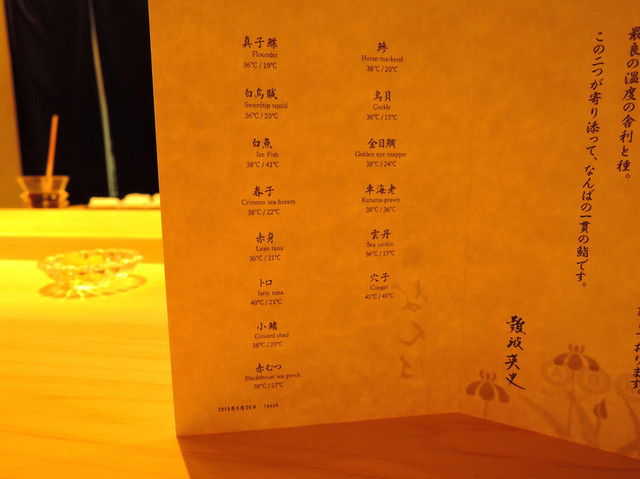 最良の温度の舎利と種。
この二つが寄り添って、なんばの一貫の鮨です。
難波英史
真子鰈
Flounder
36℃ / 19℃
白烏賊
Swordtip squid
36℃ / 20℃
白魚
Ice Fish
38℃ / 41℃
春子
Crimson sea-bream
38℃ / 22℃
赤身
Lean tuna
36℃ / 21℃
トロ
fatty tuna
40℃ / 21℃
小鰭
Gizzard shad
38℃ / 20℃
赤むつ
Blackthroat sea perch
38℃ / 23℃
鰺
Horse-mackerel
38℃ / 20℃
鳥貝
Cockle
36℃ / 15℃
金目鯛
Golden eye snapper
38℃ / 24℃
車海老
Kuruma-prawn
38℃ / 36℃
雲丹
Sea urchin
36℃ / 17℃
穴子
Conger
40℃ / 45℃